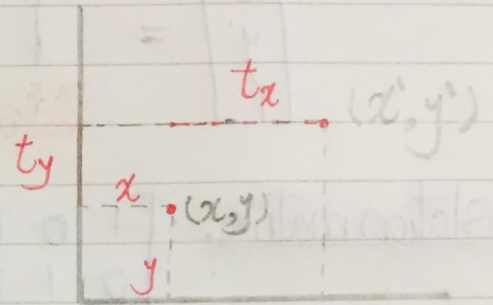 tx
(x', y')
ty
x
(x,y)
y